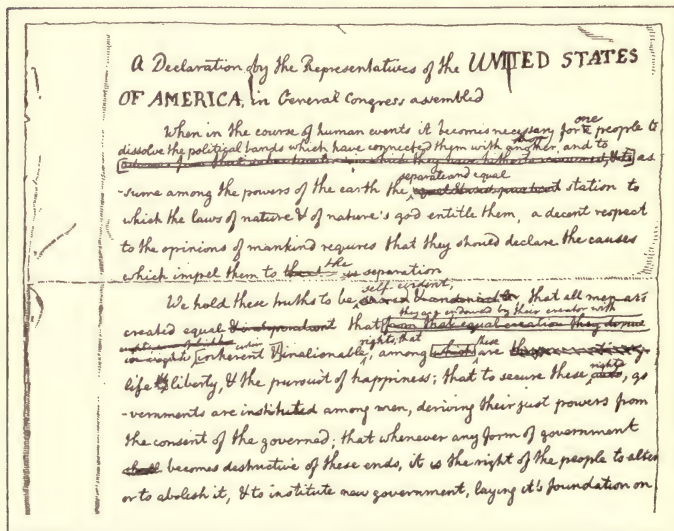 A Declaration by the Representatives of the UNITED STATES
OF AMERICA, in General Congress assembled
When in the course of human events it becomes necessary for one people to
dissolve the political bands which have connected them with another, and to as
separate and equal
-sume among the powers of the earth the station to
which the laws of nature & of nature's god entitle them, a decent respect
to the opinions of mankind requires that they should declare the causes
the
which impel them to separation
self-evident;
We hold these truths to be that all men are
they are endowed by their creator with
created equal & independent that from that equal creation they derive
rights; that these
inherent & inalienable, among which are
life & liberty, & the pursuit of happiness; that to secure these rights, go
-vernments are instituted among men, deriving their just powers from
the consent of the governed; that whenever any form of government
shall becomes destructive of these ends, it is the right of the people to alter
or to abolish it, & to institute new government, laying it's foundation on